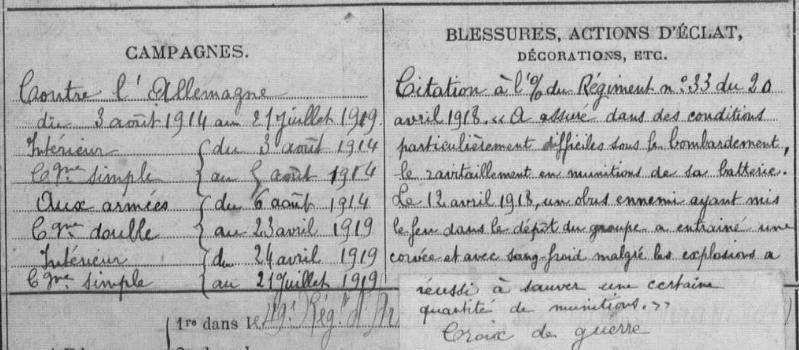 CAMPAGNES.
Contre l'Allemagne
du 3 août 1914 au 21 juillet 1919.
Intérieur { du 3 août 1914
Cgne simple { au 5 août 1914
Aux armées { du 6 août 1914
Cgne double { au 23 avril 1919
Intérieur { du 24 avril 1919
Cgne simple { au 21 juillet 1919
BLESSURES, ACTIONS D'ÉCLAT,
DÉCORATIONS, ETC.
Citation à l'O/ du Régiment n° 33 du 20
avril 1918. « A assuré dans des conditions
particulièrement difficiles sous le bombardement,
le ravitaillement en munitions de sa batterie.
Le 12 avril 1918, un obus ennemi ayant mis
le feu dans le dépôt du groupe a entrainé une
corvée et avec sang-froid malgré les explosions a
réussi à sauver une certaine
quantité de munitions. »
Croix de guerre
1re dans le Régt d'